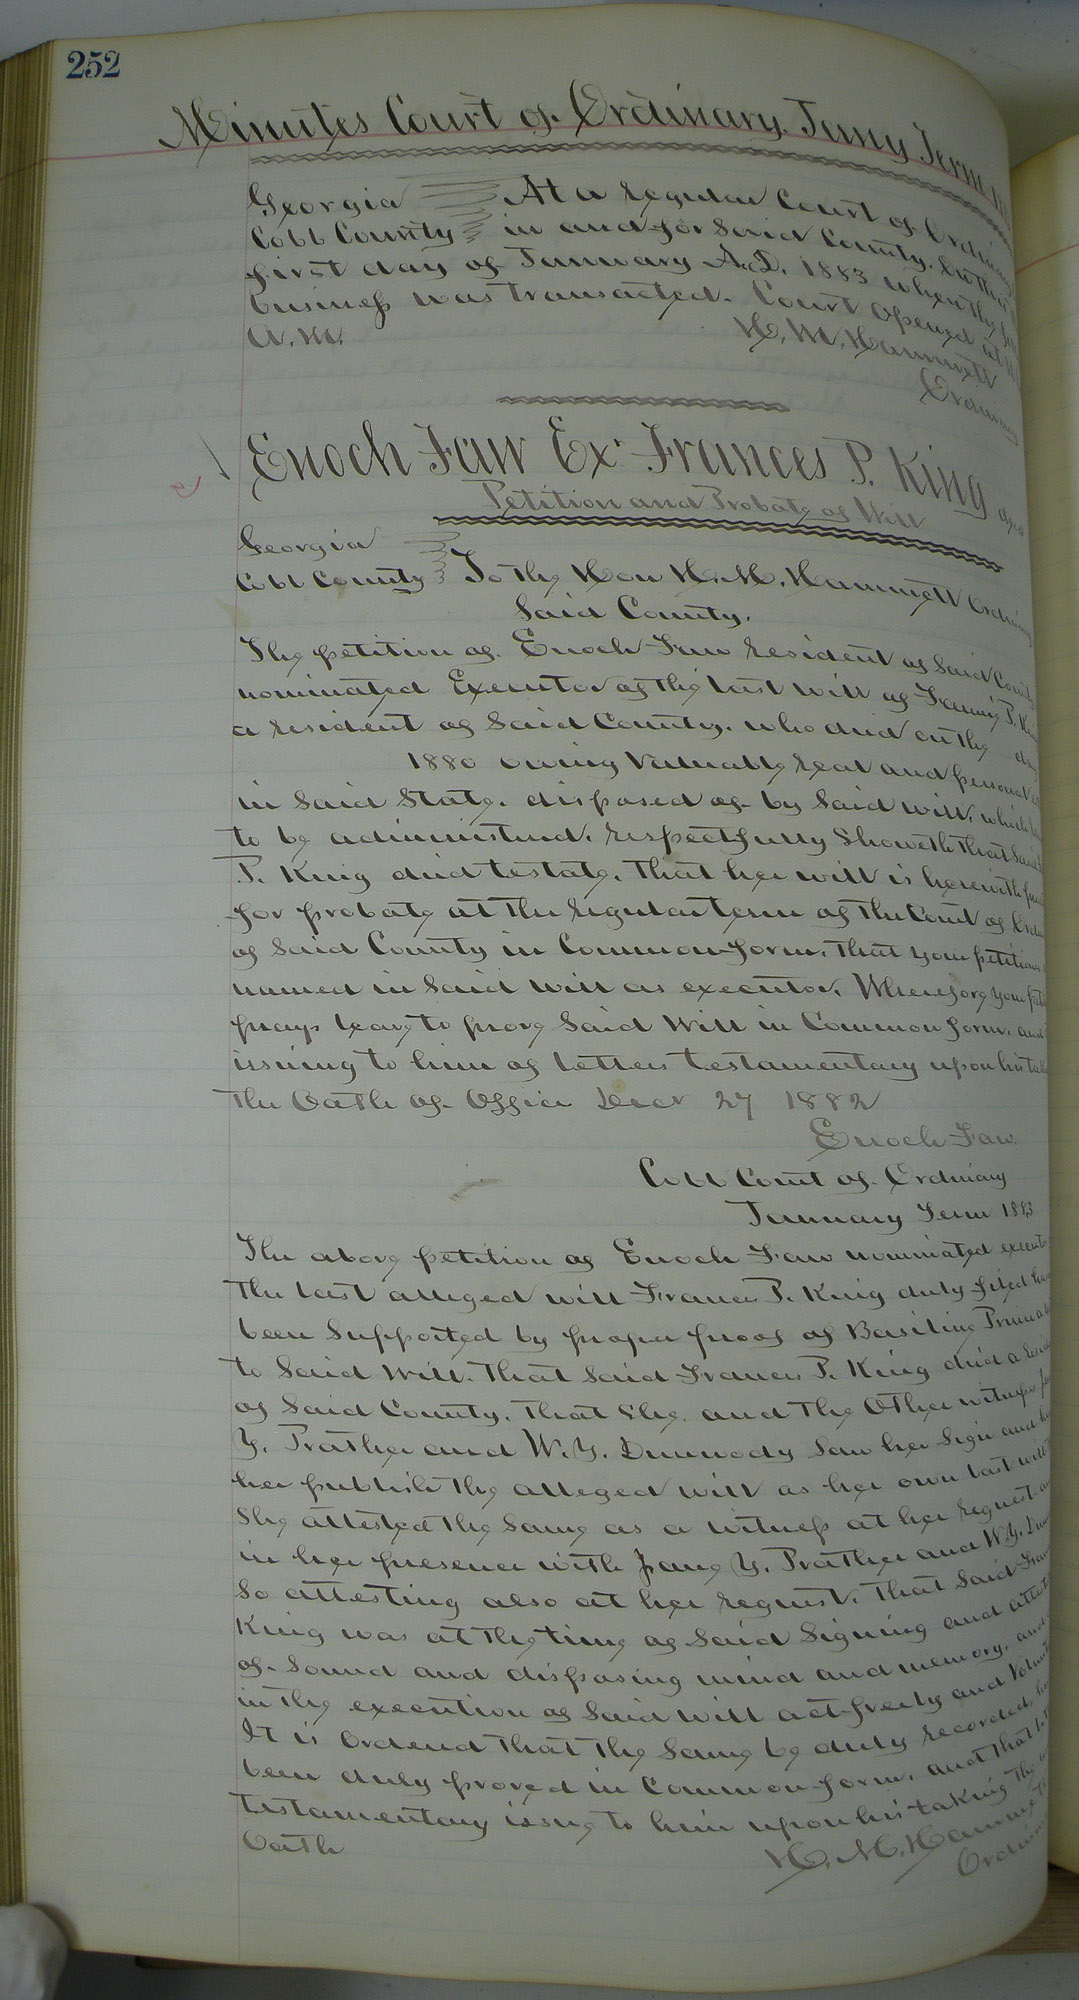 252
Minutes Court of Ordinary January Term
Georgia At a regular Court of Ordinary
Cobb County in and for Said County. On this
first day of January A.D. 1883 when the
business was transacted. Court opened at
A.M. H. M. Hammett
Ordinary
Enoch Faw Exr Frances P. King
Petition and Probate of Will
Georgia
Cobb County To the Hon H. M. Hammett Ordinary
Said County.
The petition of Enoch Faw resident of Said County
nominated Executor of the last will of Frances P. King
a resident of Said County. who died on the day
1880 owning valuable real and personal
in Said State. disposed of by Said will. which
to be administered. respectfully Showeth that Said
P. King died testate. that her will is herewith
for probate at the regular term of the Court of
of Said County in Common form. that your petitioner
named in Said will as executor. Wherefore your
prays leave to prove Said Will in Common form. and
issuing to him of letters testamentary upon his
the Oath of Office Decr 27 1882
Enoch Faw.
Cobb Court of Ordinary
January Term 1883
The above petition of Enoch Faw nominated executor
the last alleged will Frances P. King duly filed
been Supported by proper proof of
to Said Will. that Said Frances P. King died a
of Said County. that She and the Other witnesses
Y. Prather and W. Y. Dunwody Saw her Sign and
her publish the alleged will as her own last will
She attested the Same as a witness at her request
in her presence with Jane Y. Prather and W. Y.
So attesting also at her request. that Said
King was at the time of Said Signing and
of Sound and disposing mind and memory. and
in the execution of Said will act freely and
It is Ordered that the Same be duly recorded,
been duly proved in Common form. and that
testamentary issue to him upon his taking the
Oath H. M. Hammett
Ordinary